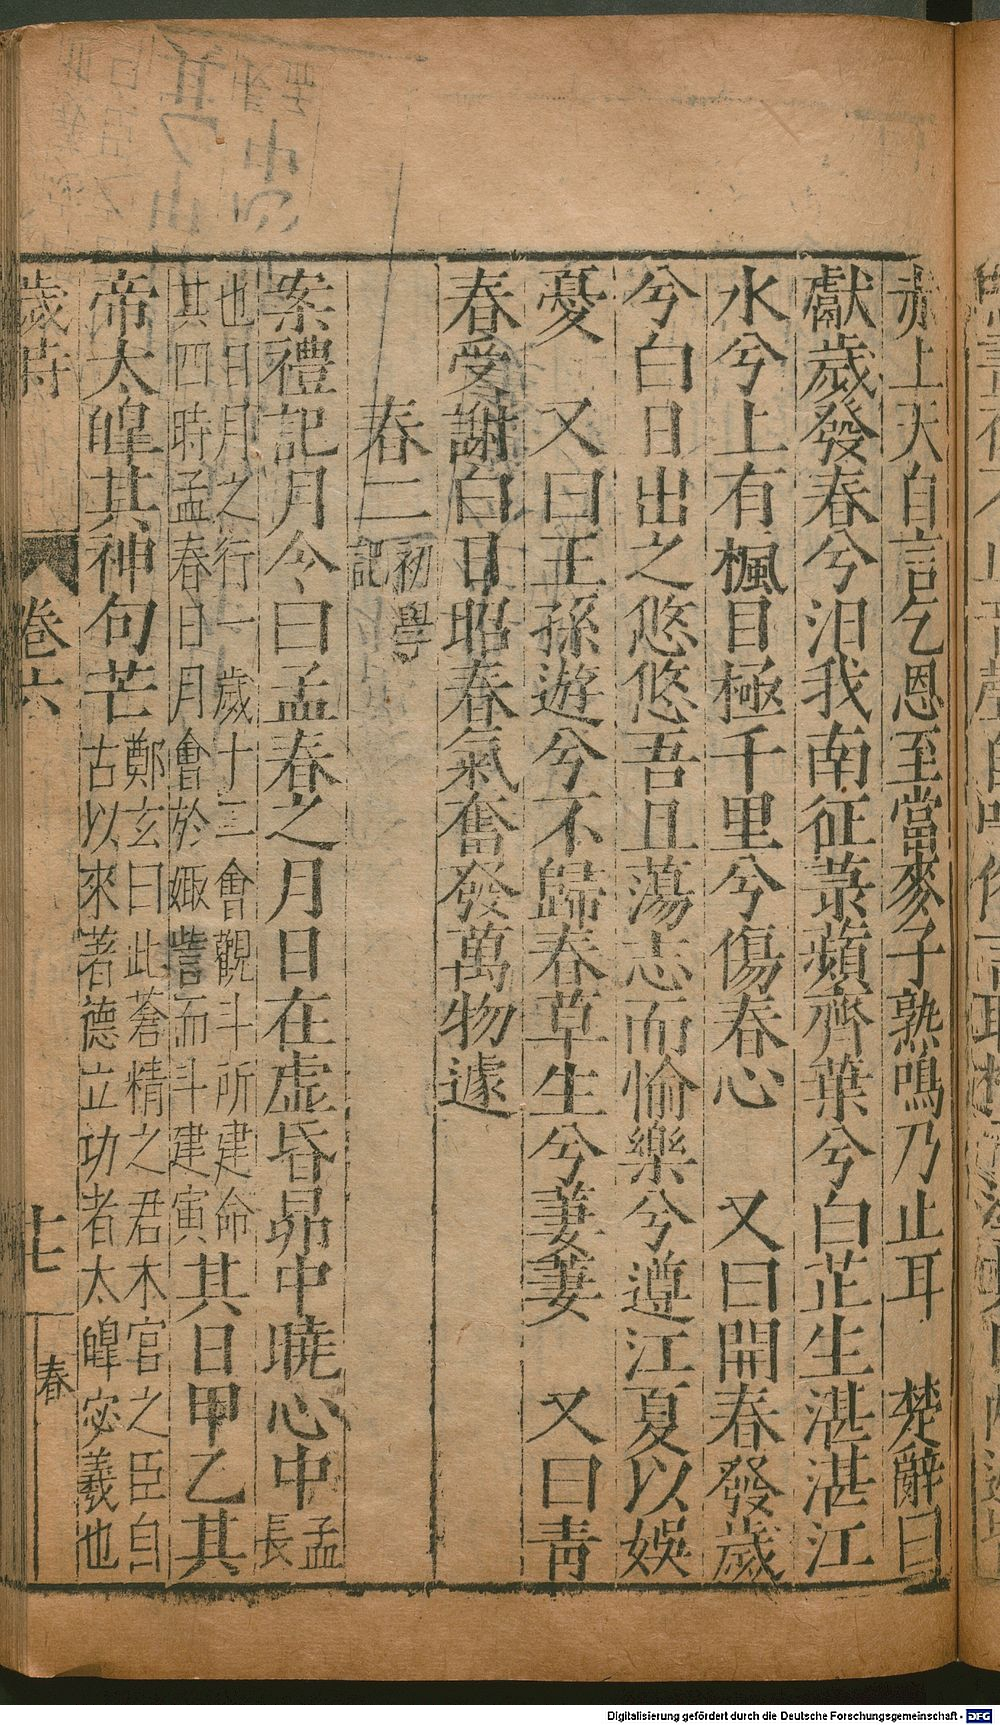 赤上天自言乞恩至當麥子熟鳴乃止耳　楚辭曰
獻歲發春兮汨我南征菉蘋齊葉兮白芷生湛湛江
水兮上有楓目極千里兮傷春心　又曰開春發歲
兮白日出之悠悠吾且蕩志而愉樂兮遵江夏以娛
憂　又曰王孫遊兮不歸春草生兮萋萋　又曰青
春受謝白日昭春氣奮發萬物遽
春二
初學
記
案禮記月令曰孟春之月日在虛昏昴中曉心中
孟
長
也日月之行一歲十二會觀斗所建命
其四時孟春日月會於娵訾而斗建寅
其日甲乙其
帝太皥其神句芒
鄭玄曰此蒼精之君木官之臣自
古以來著德立功者太皥宓羲也
歲時
卷六
七
春
Digitalisierung gefördert durch die Deutsche Forschungsgemeinschaft - DFG